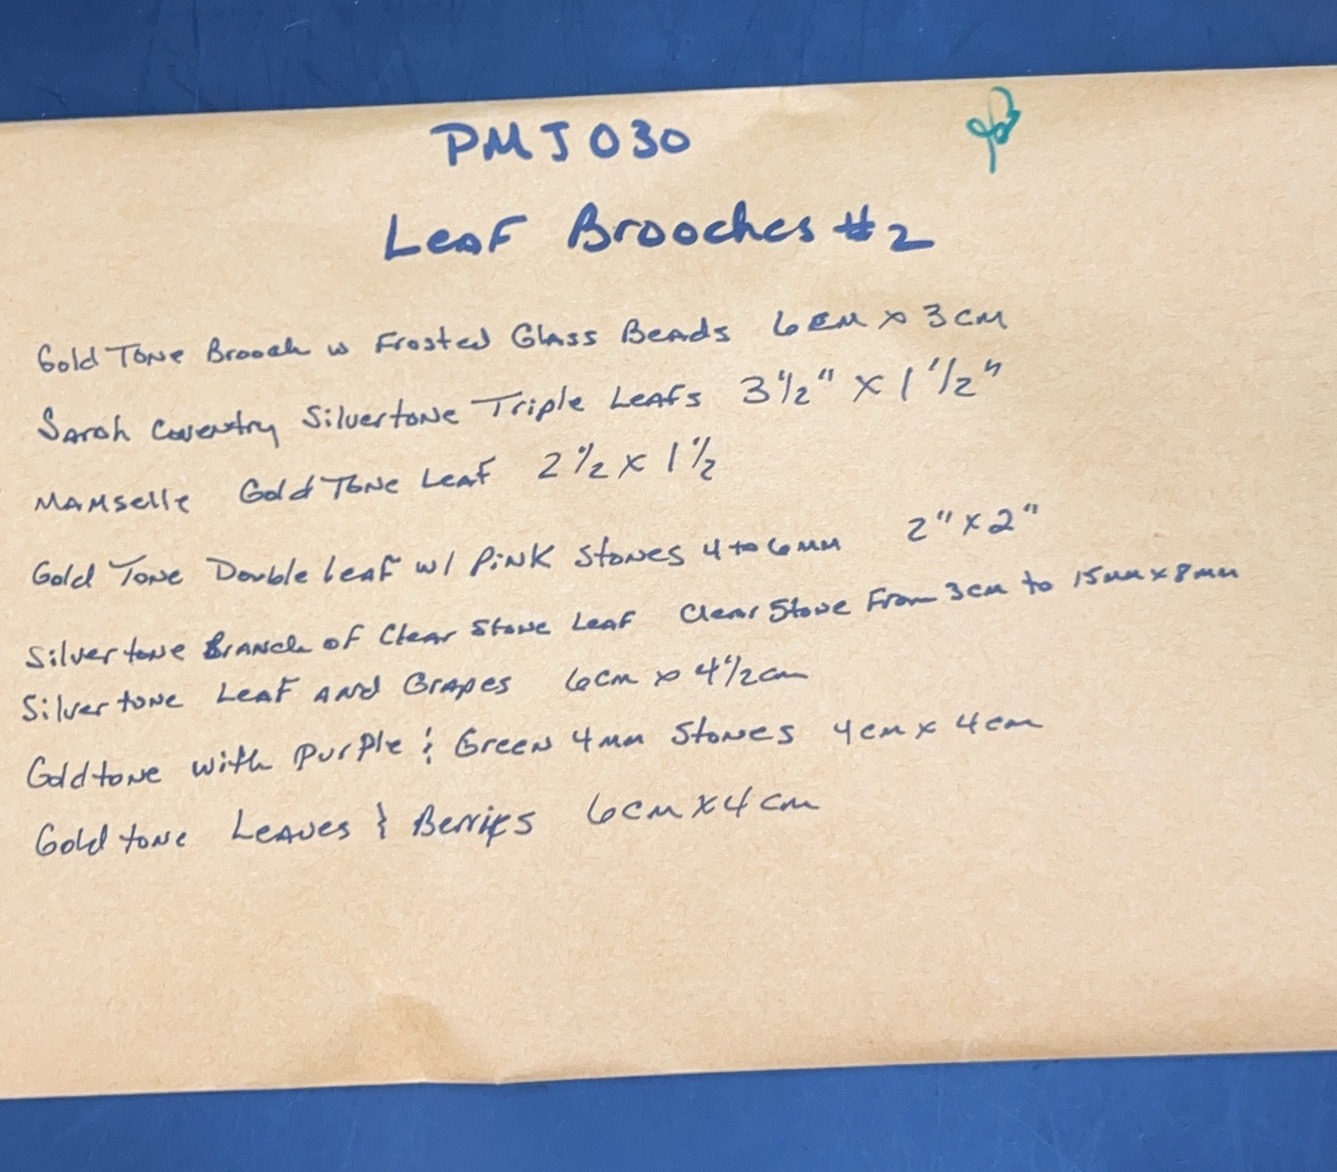 PMJ030
Leaf Brooches #2
Gold Tone Brooch w Frosted Glass Beads 6cm x 3cm
Sarah Coventry Silvertone Triple Leafs 3 1/2" x 1 1/2"
Mamselle Gold Tone Leaf 2 1/2 x 1 1/2
Gold Tone Double leaf w/ Pink Stones 4 to 6mm 2" x 2"
Silvertone Branch of Clear Stone Leaf Clear Stone From 3cm to 15mm x 8mm
Silvertone Leaf and Grapes 6cm x 4 1/2cm
Goldtone with Purple & Green 4mm Stones 4cm x 4cm
Goldtone Leaves & Berries 6cm x 4cm